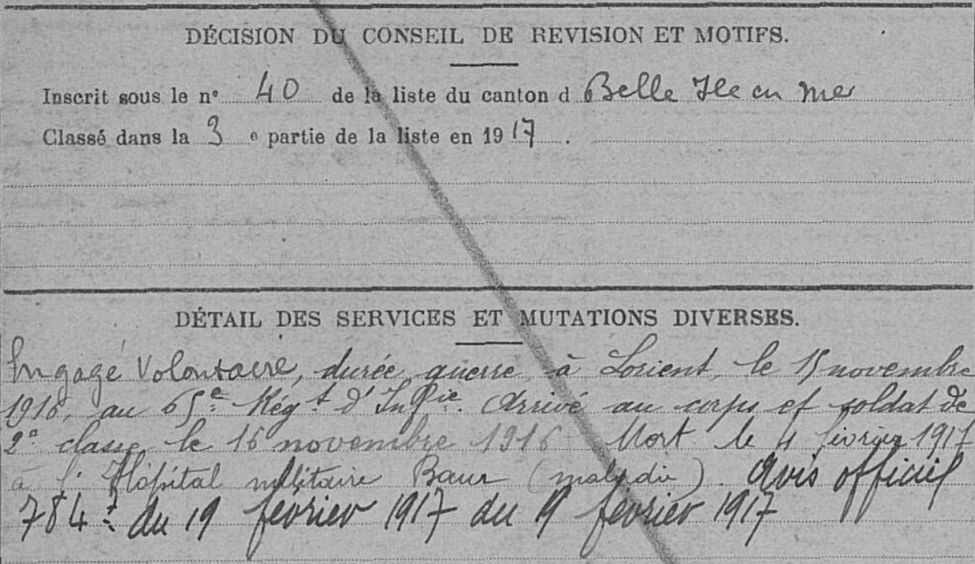 DÉCISION DU CONSEIL DE REVISION ET MOTIFS.
Inscrit sous le n° 40 de la liste du canton d Belle Ile en Mer
Classé dans la 3 e partie de la liste en 1917.
DÉTAIL DES SERVICES ET MUTATIONS DIVERSES.
Engagé Volontaire, durée guerre, à Lorient, le 15 novembre
1916, au 65e Régt d'Infie. Arrivé au corps et soldat de
2e classe le 16 novembre 1916 Mort le 4 février 1917
à l'Hôpital militaire Baur (maladie). Avis officiel
784 du 19 février 1917 du 19 février 1917